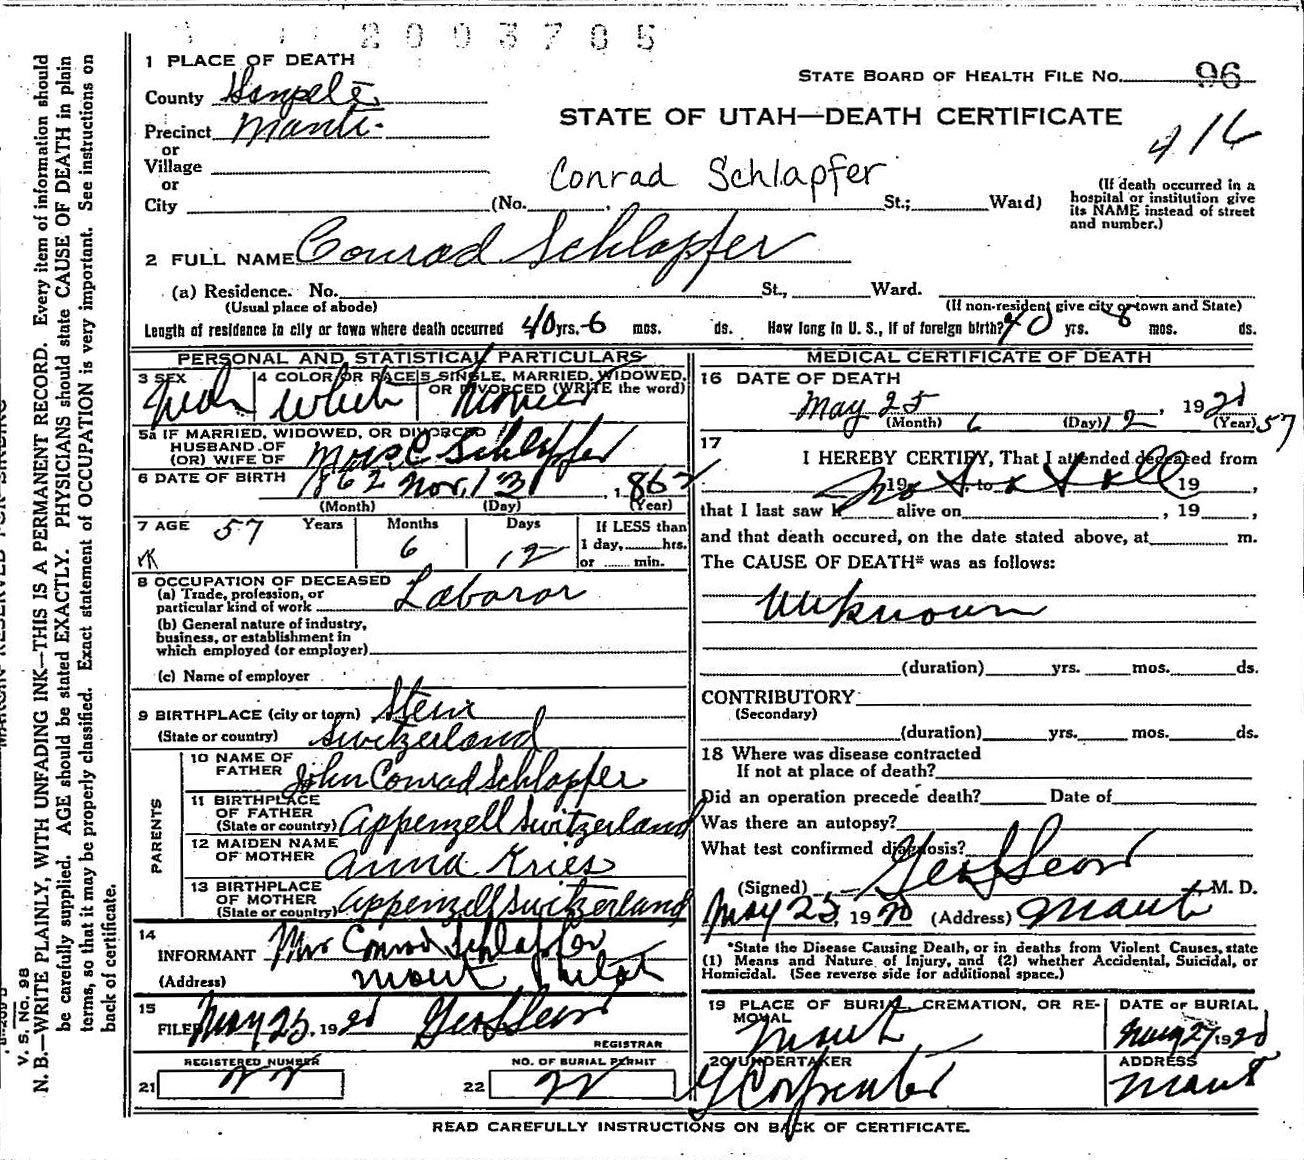 2003705
1 PLACE OF DEATH
STATE BOARD OF HEALTH FILE NO. 96
County Sanpete
STATE OF UTAH—DEATH CERTIFICATE
Precinct Manti
416
or
Village
or
Conrad Schlapfer
City (No. , St.; Ward)
(If death occurred in a hospital or institution give its NAME instead of street and number.)
2 FULL NAME Conrad Schlapfer
(a) Residence. No. St., Ward.
(Usual place of abode) (If non-resident give city or town and State)
Length of residence in city or town where death occurred 40 yrs. 6 mos. ds. How long in U. S., if of foreign birth? 40 yrs. 8 mos. ds.
PERSONAL AND STATISTICAL PARTICULARS
3 SEX
4 COLOR OR RACE White
5 SINGLE, MARRIED, WIDOWED, OR DIVORCED (WRITE the word)
5a IF MARRIED, WIDOWED, OR DIVORCED
HUSBAND OF
(OR) WIFE OF Mrs C Schlapfer
6 DATE OF BIRTH 1862 Nov. 13, 1862
(Month) (Day) (Year)
7 AGE 57 Years 6 Months 12 Days
If LESS than
1 day, hrs.
or min.
8 OCCUPATION OF DECEASED
(a) Trade, profession, or
particular kind of work Laboror
(b) General nature of industry,
business, or establishment in
which employed (or employer)
(c) Name of employer
9 BIRTHPLACE (city or town) Stein
(State or country) Switzerland
PARENTS
10 NAME OF
FATHER John Conrad Schlapfer
11 BIRTHPLACE
OF FATHER
(State or country) Appenzell Switzerland
12 MAIDEN NAME
OF MOTHER Anna Kries
13 BIRTHPLACE
OF MOTHER
(State or country) Appenzell Switzerland
14
INFORMANT Mrs Conrad Schlapfer
(Address) Manti Utah
15
FILED May 25, 1920
REGISTRAR
REGISTERED NUMBER
21 22
NO. OF BURIAL PERMIT
22 22
MEDICAL CERTIFICATE OF DEATH
16 DATE OF DEATH
May 25, 1920
(Month) 6 (Day) 12 (Year) 57
17
I HEREBY CERTIFY, That I attended deceased from
, 19 , to , 19 ,
that I last saw h alive on , 19 ,
and that death occured, on the date stated above, at m.
The CAUSE OF DEATH* was as follows:
Unknown
(duration) yrs. mos. ds.
CONTRIBUTORY
(Secondary)
(duration) yrs. mos. ds.
18 Where was disease contracted
If not at place of death?
Did an operation precede death? Date of
Was there an autopsy?
What test confirmed diagnosis?
(Signed) M. D.
May 25, 1920 (Address) Manti
*State the Disease Causing Death, or in deaths from Violent Causes, state
(1) Means and Nature of Injury, and (2) whether Accidental, Suicidal, or
Homicidal. (See reverse side for additional space.)
19 PLACE OF BURIAL, CREMATION, OR RE-
MOVAL Manti
DATE OF BURIAL
May 27 1920
20 UNDERTAKER
ADDRESS
Manti
READ CAREFULLY INSTRUCTIONS ON BACK OF CERTIFICATE.
MARGIN RESERVED FOR BINDING
V. S. No. 98
N. B.—WRITE PLAINLY, WITH UNFADING INK—THIS IS A PERMANENT RECORD. Every item of information should
be carefully supplied. AGE should be stated EXACTLY. PHYSICIANS should state CAUSE OF DEATH in plain
terms, so that it may be properly classified. Exact statement of OCCUPATION is very important. See instructions on
back of certificate.